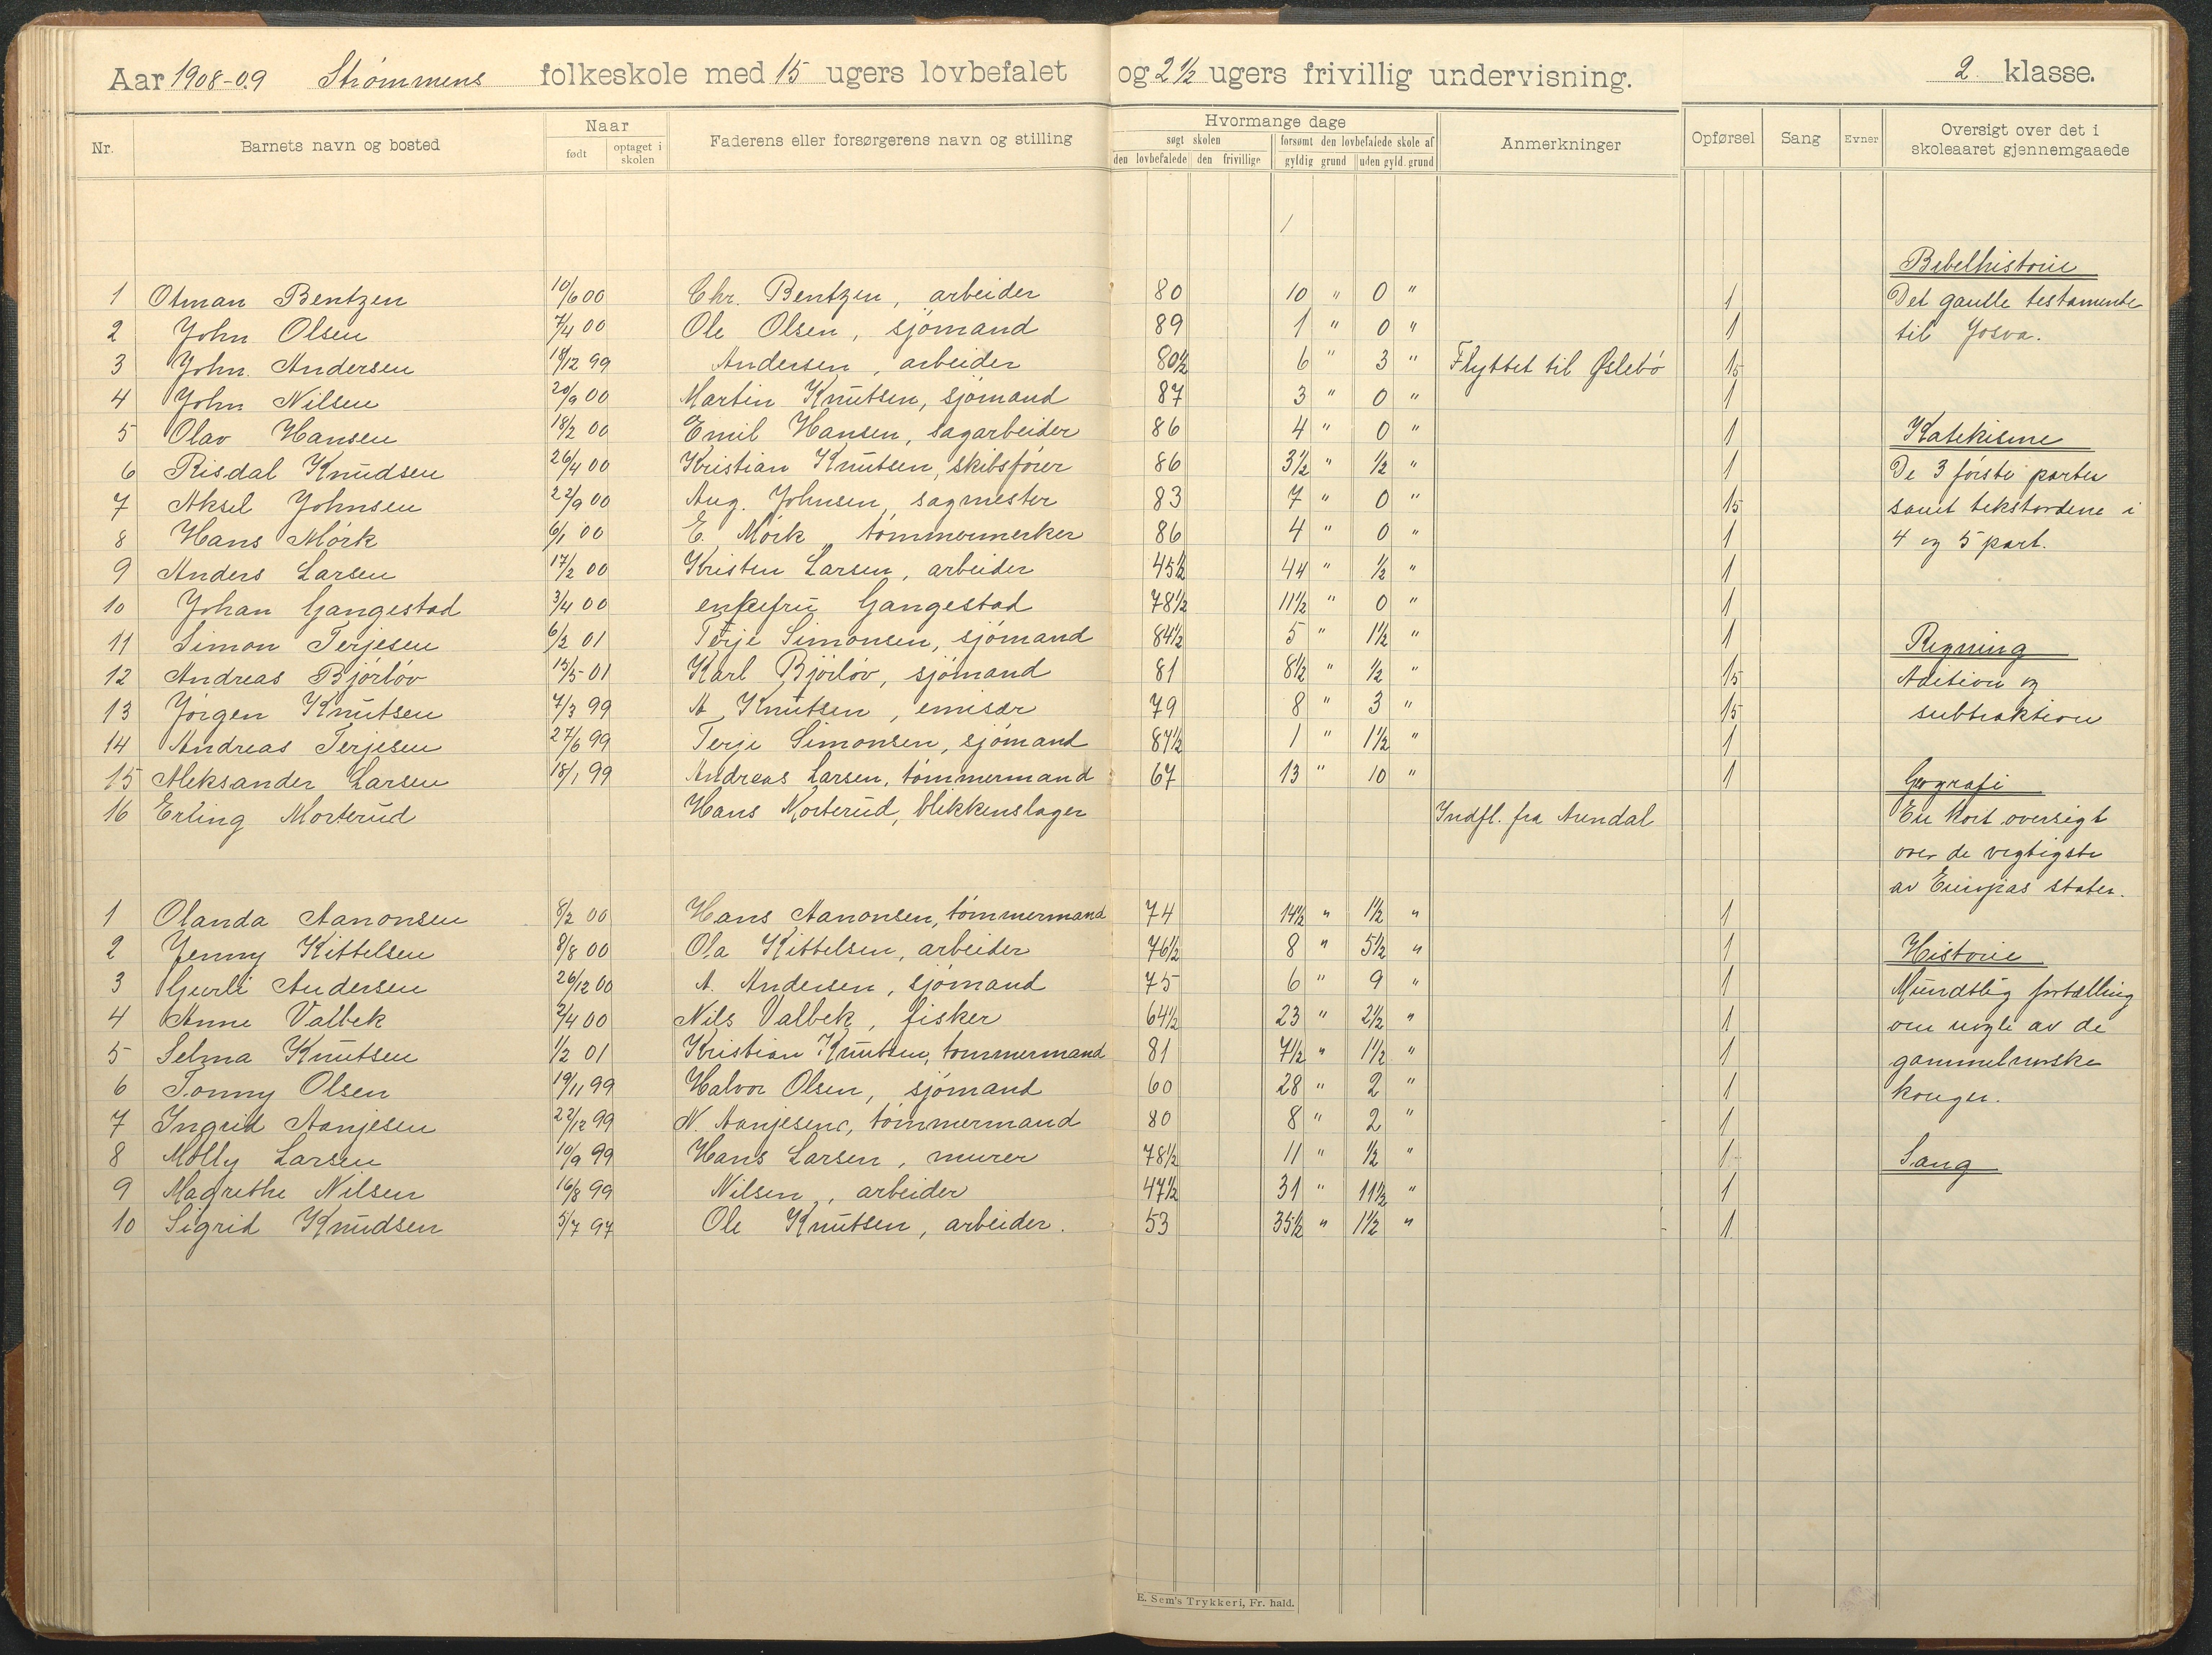 Aar 1908-09 Strømmens folkeskole med 15 ugers lovbefalet og 2 ½ ugers frivillig undervisning. 2. klasse.
Nr. Barnets navn og bosted Naar født optaget i skolen Faderens eller forsørgerens navn og stilling Hvormange dage søgt skolen den lovbefalede den frivillige forsømt den lovbefalede skole af gyldig grund uden gyld. grund Anmerkninger Opførsel Sang Evner Oversigt over det i skoleaaret gjennemgaaede
Bibelhistorie
1 Otman Bentzen 10/6 00 Chr. Bentzen, arbeider 80 10 " 0 " 1 Det gamle testamente
2 John Olsen 7/4 00 Ole Olsen, sjömand 89 1 " 0 " 1 til Josva.
3 John Andersen 18/12 99 Andersen, arbeider 80½ 6 " 3 " Flyttet til Øslebö 15
4 John Nilsen 20/9 00 Martin Knutsen, sjömand 87 3 " 0 " 1
5 Olav Hansen 18/2 00 Emil Hansen, sagarbeider 86 4 " 0 " 1 Katekisme
6 Risdal Knudsen 26/4 00 Kristian Knutsen, skibsförer 86 3½ " ½ " 1 De 3 förste parter
7 Aksel Johnsen 22/9 00 Aug. Johnsen, sagmester 83 7 " 0 " 15 samt tekstordene i
8 Hans Mörk 6/1 00 E. Mörk, tömmermerker 86 4 " 0 " 1 4 og 5 part.
9 Anders Larsen 17/2 00 Kristen Larsen, arbeider 45½ 44 " ½ " 1
10 Johan Gangestad 3/4 00 enkefru Gangestad 78½ 11½ " 0 " 1
11 Simon Terjesen 6/2 01 Terje Simonsen, sjömand 84½ 5 " 1½ " 1 Regning
12 Andreas Björlöv 15/5 01 Karl Björlöv, sjömand 81 8½ " ½ " 15 Adition og
13 Jörgen Knutsen 7/3 99 A Knutsen, emisær 79 8 " 3 " 15 subtraktion
14 Andreas Terjesen 27/6 99 Terje Simonsen, sjömand 87½ 1 " 1½ " 1
15 Aleksander Larsen 18/1 99 Andreas Larsen, tömmermand 67 13 " 10 " 1 Geografi
16 Erling Morterud Hans Morterud, blikkenslager Indfl. fra Arendal En kort oversigt
over de vigtigste
av Europas stater.
1 Olanda Aanonsen 8/2 00 Hans Aanonsen, tömmermand 74 14½ " 1½ " 1
2 Jenny Kittelsen 8/8 00 Ola Kittelsen, arbeider 76½ 8 " 5½ " 1 Historie
3 Gurli Andersen 26/12 00 A. Andersen, sjömand 75 6 " 9 " 1 Mundtlig fortælling
4 Anne Valbek 2/4 00 Nils Valbek, fisker 64½ 23 " 2½ " 1 om nogle av de
5 Selma Knutsen ½ 01 Kristian Knutsen, tømmermand 81 7½ " 1½ " 1 gammelnorske
6 Tonny Olsen 19/11 99 Halvor Olsen, sjömand 60 28 " 2 " 1 konger.
7 Ingrid Aanjesen 22/12 99 N. Aanjesen, tömmermand 80 8 " 2 " 1
8 Molly Larsen 10/9 99 Hans Larsen, murer 78½ 11 " ½ " 1 Sang
9 Magrethe Nilsen 16/8 99 Nilsen, arbeider 47½ 31 " 11½ " 1
10 Sigrid Knudsen 5/7 97 Ole Knutsen, arbeider. 53 35½ " 1½ " 1
E. Sem's Trykkeri, Fr. hald.